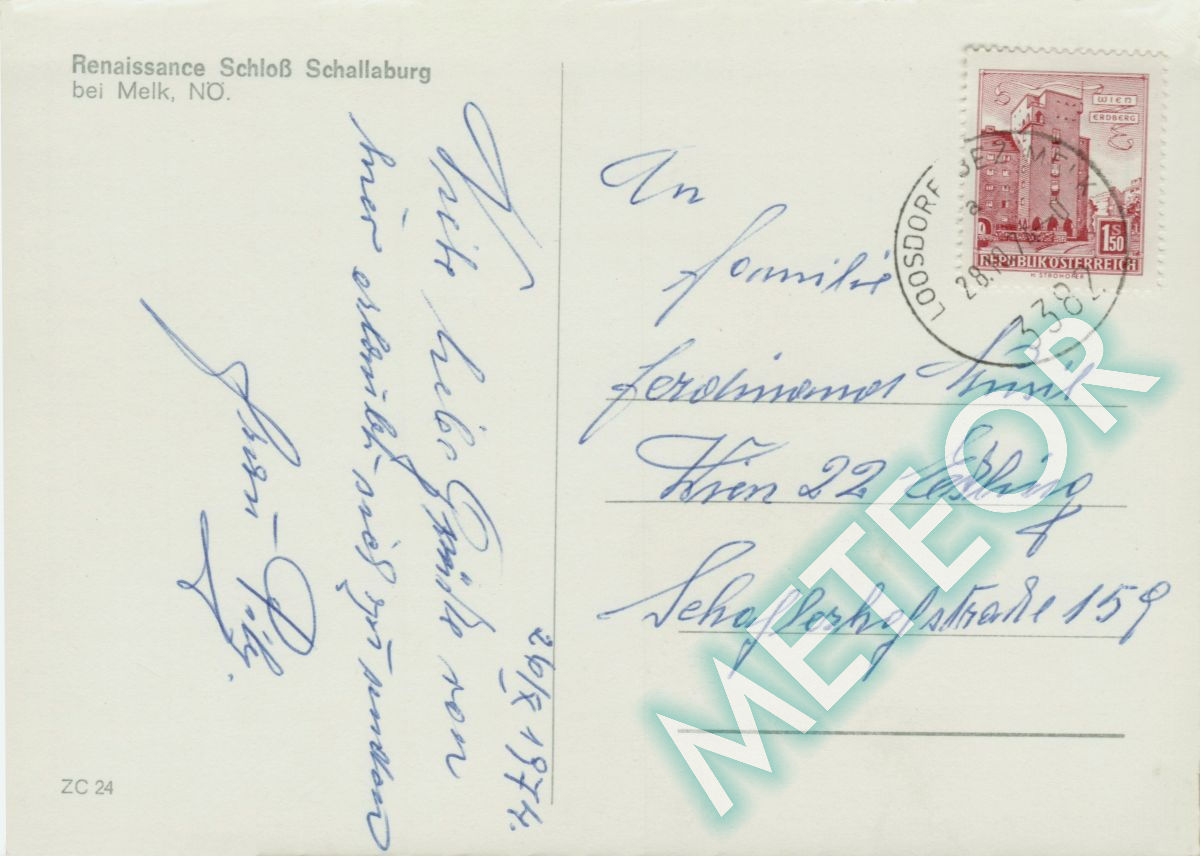 Renaissance Schloß Schallaburg
bei Melk, NÖ.
26/X 1974.
Viele liebe Grüße von
hier erlaubt sich zu senden
ZC 24
WIEN
ERDBERG
1S50
REPUBLIK ÖSTERREICH
H. STROHOFER
LOOSDORF BEZ. MELK
a
28.10.74
3382
An
Familie
Ferdinand
Wien 22 Eßling
Schafflerhofstraße 159
METEOR